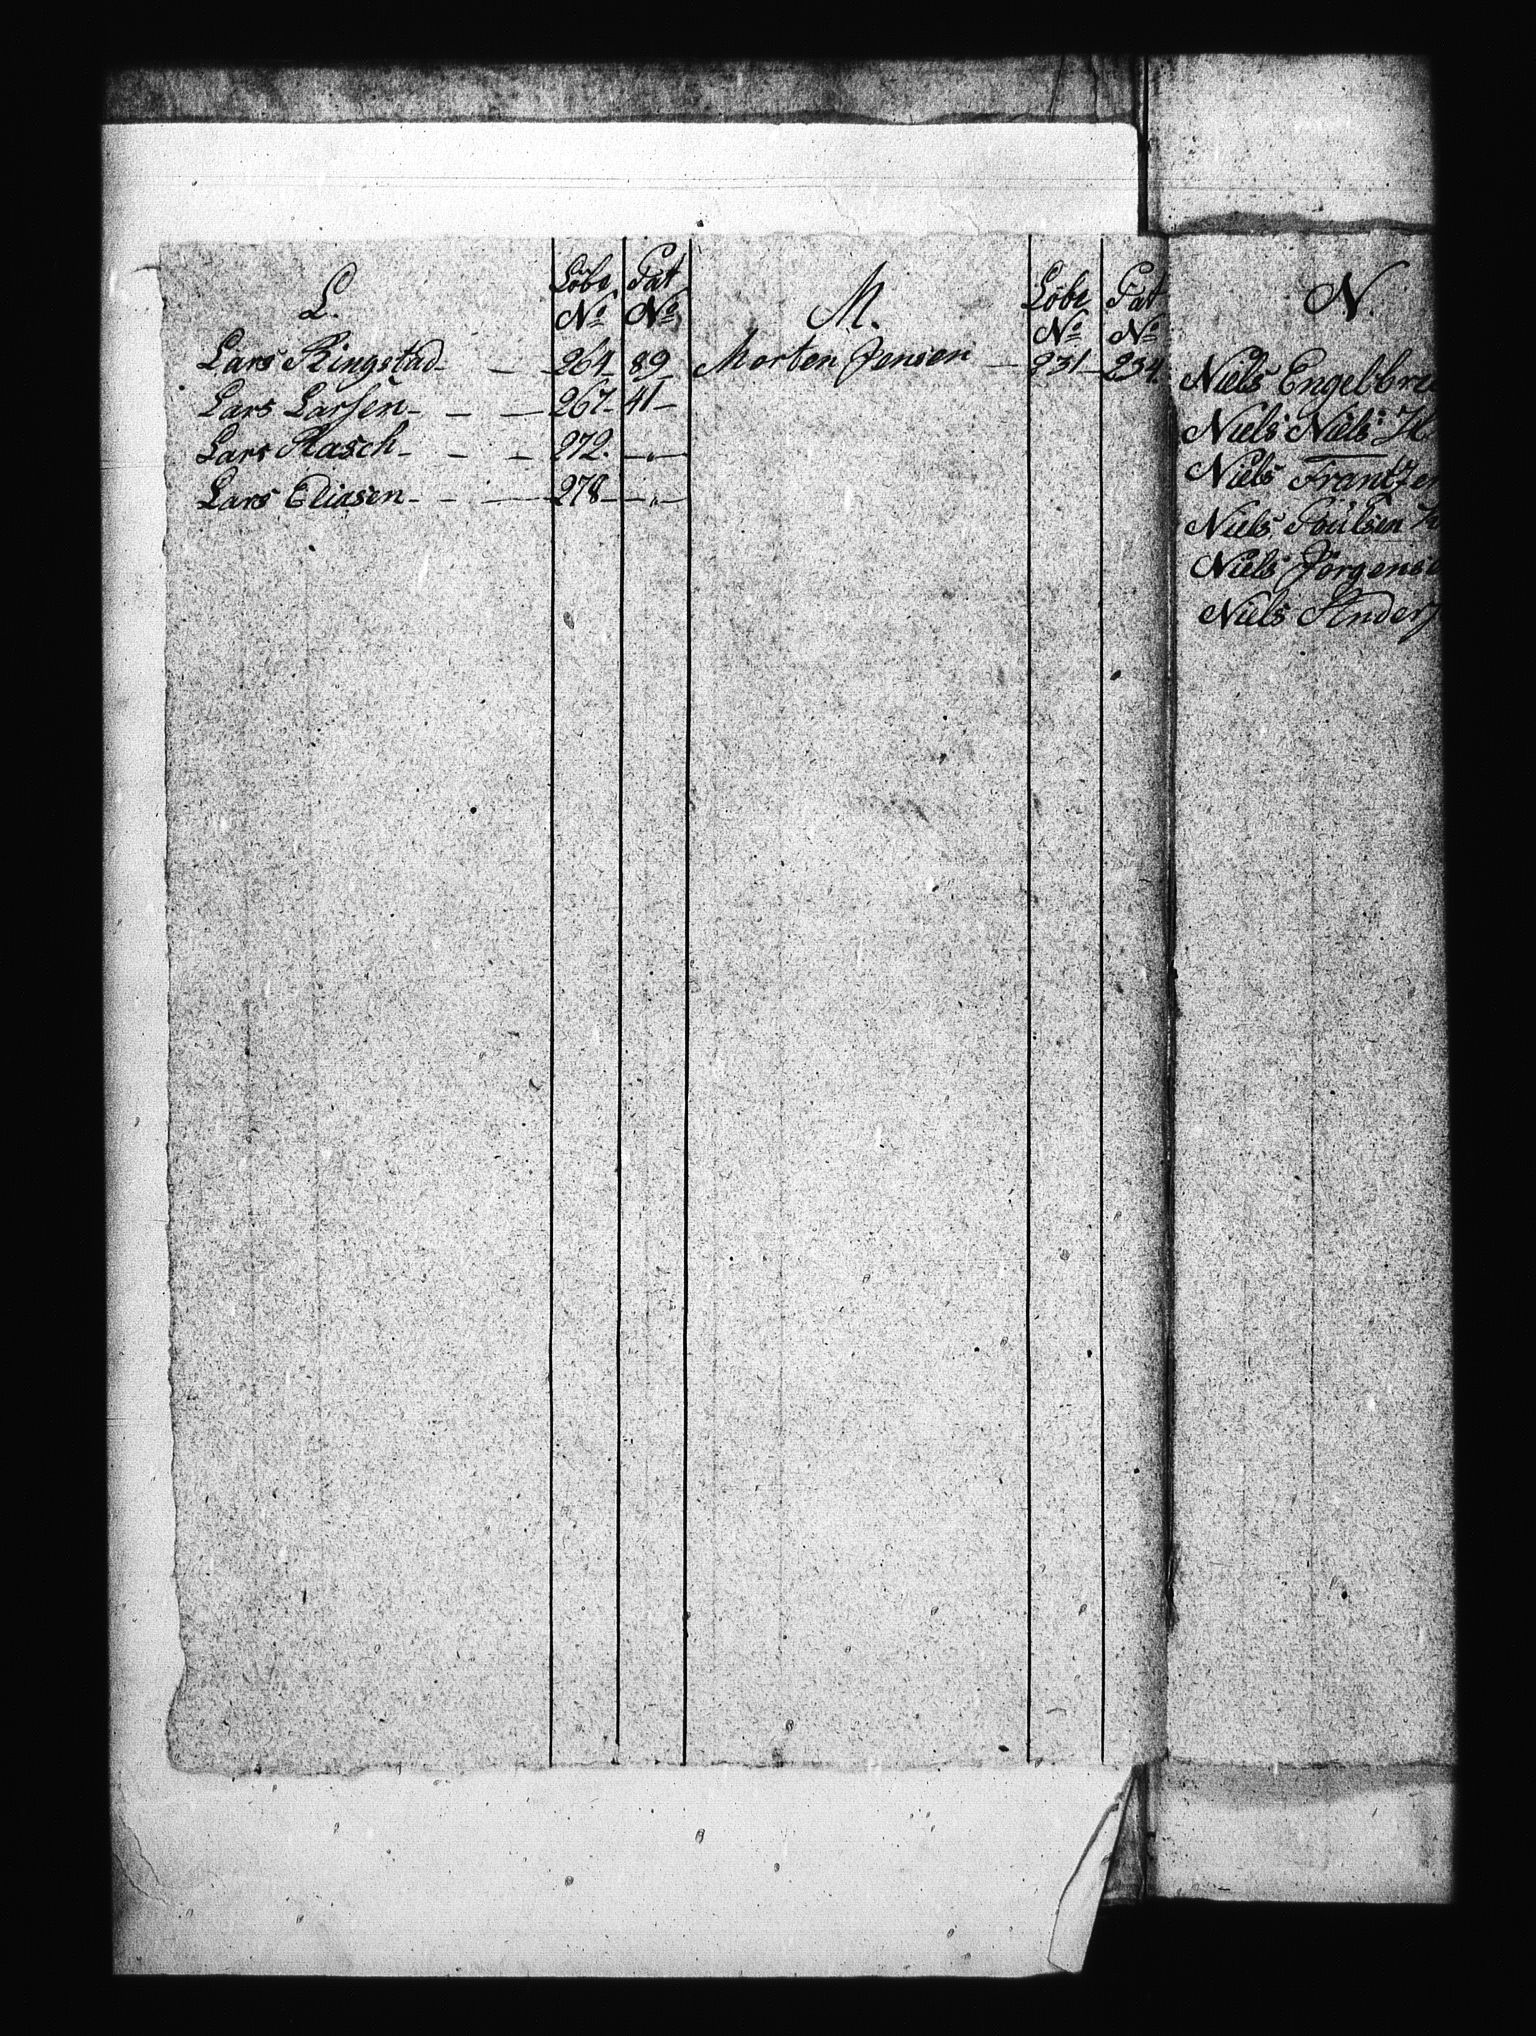 L.
Löbe Pat
No No
Lars Ringstad - - 264 89
Lars Larsen - - - 267 - 41 -
Lars Rasch - - - 272. - „ -
Lars Eliasen - - - 278 - - „ -
M.
Löbe Pat
No No
Morten Jensen - 231 - 234
N.
Niels Engelbre
Niels Niels: H
Niels Frantzen
Niels Poulsen
Niels Jörgens
Niels Anders